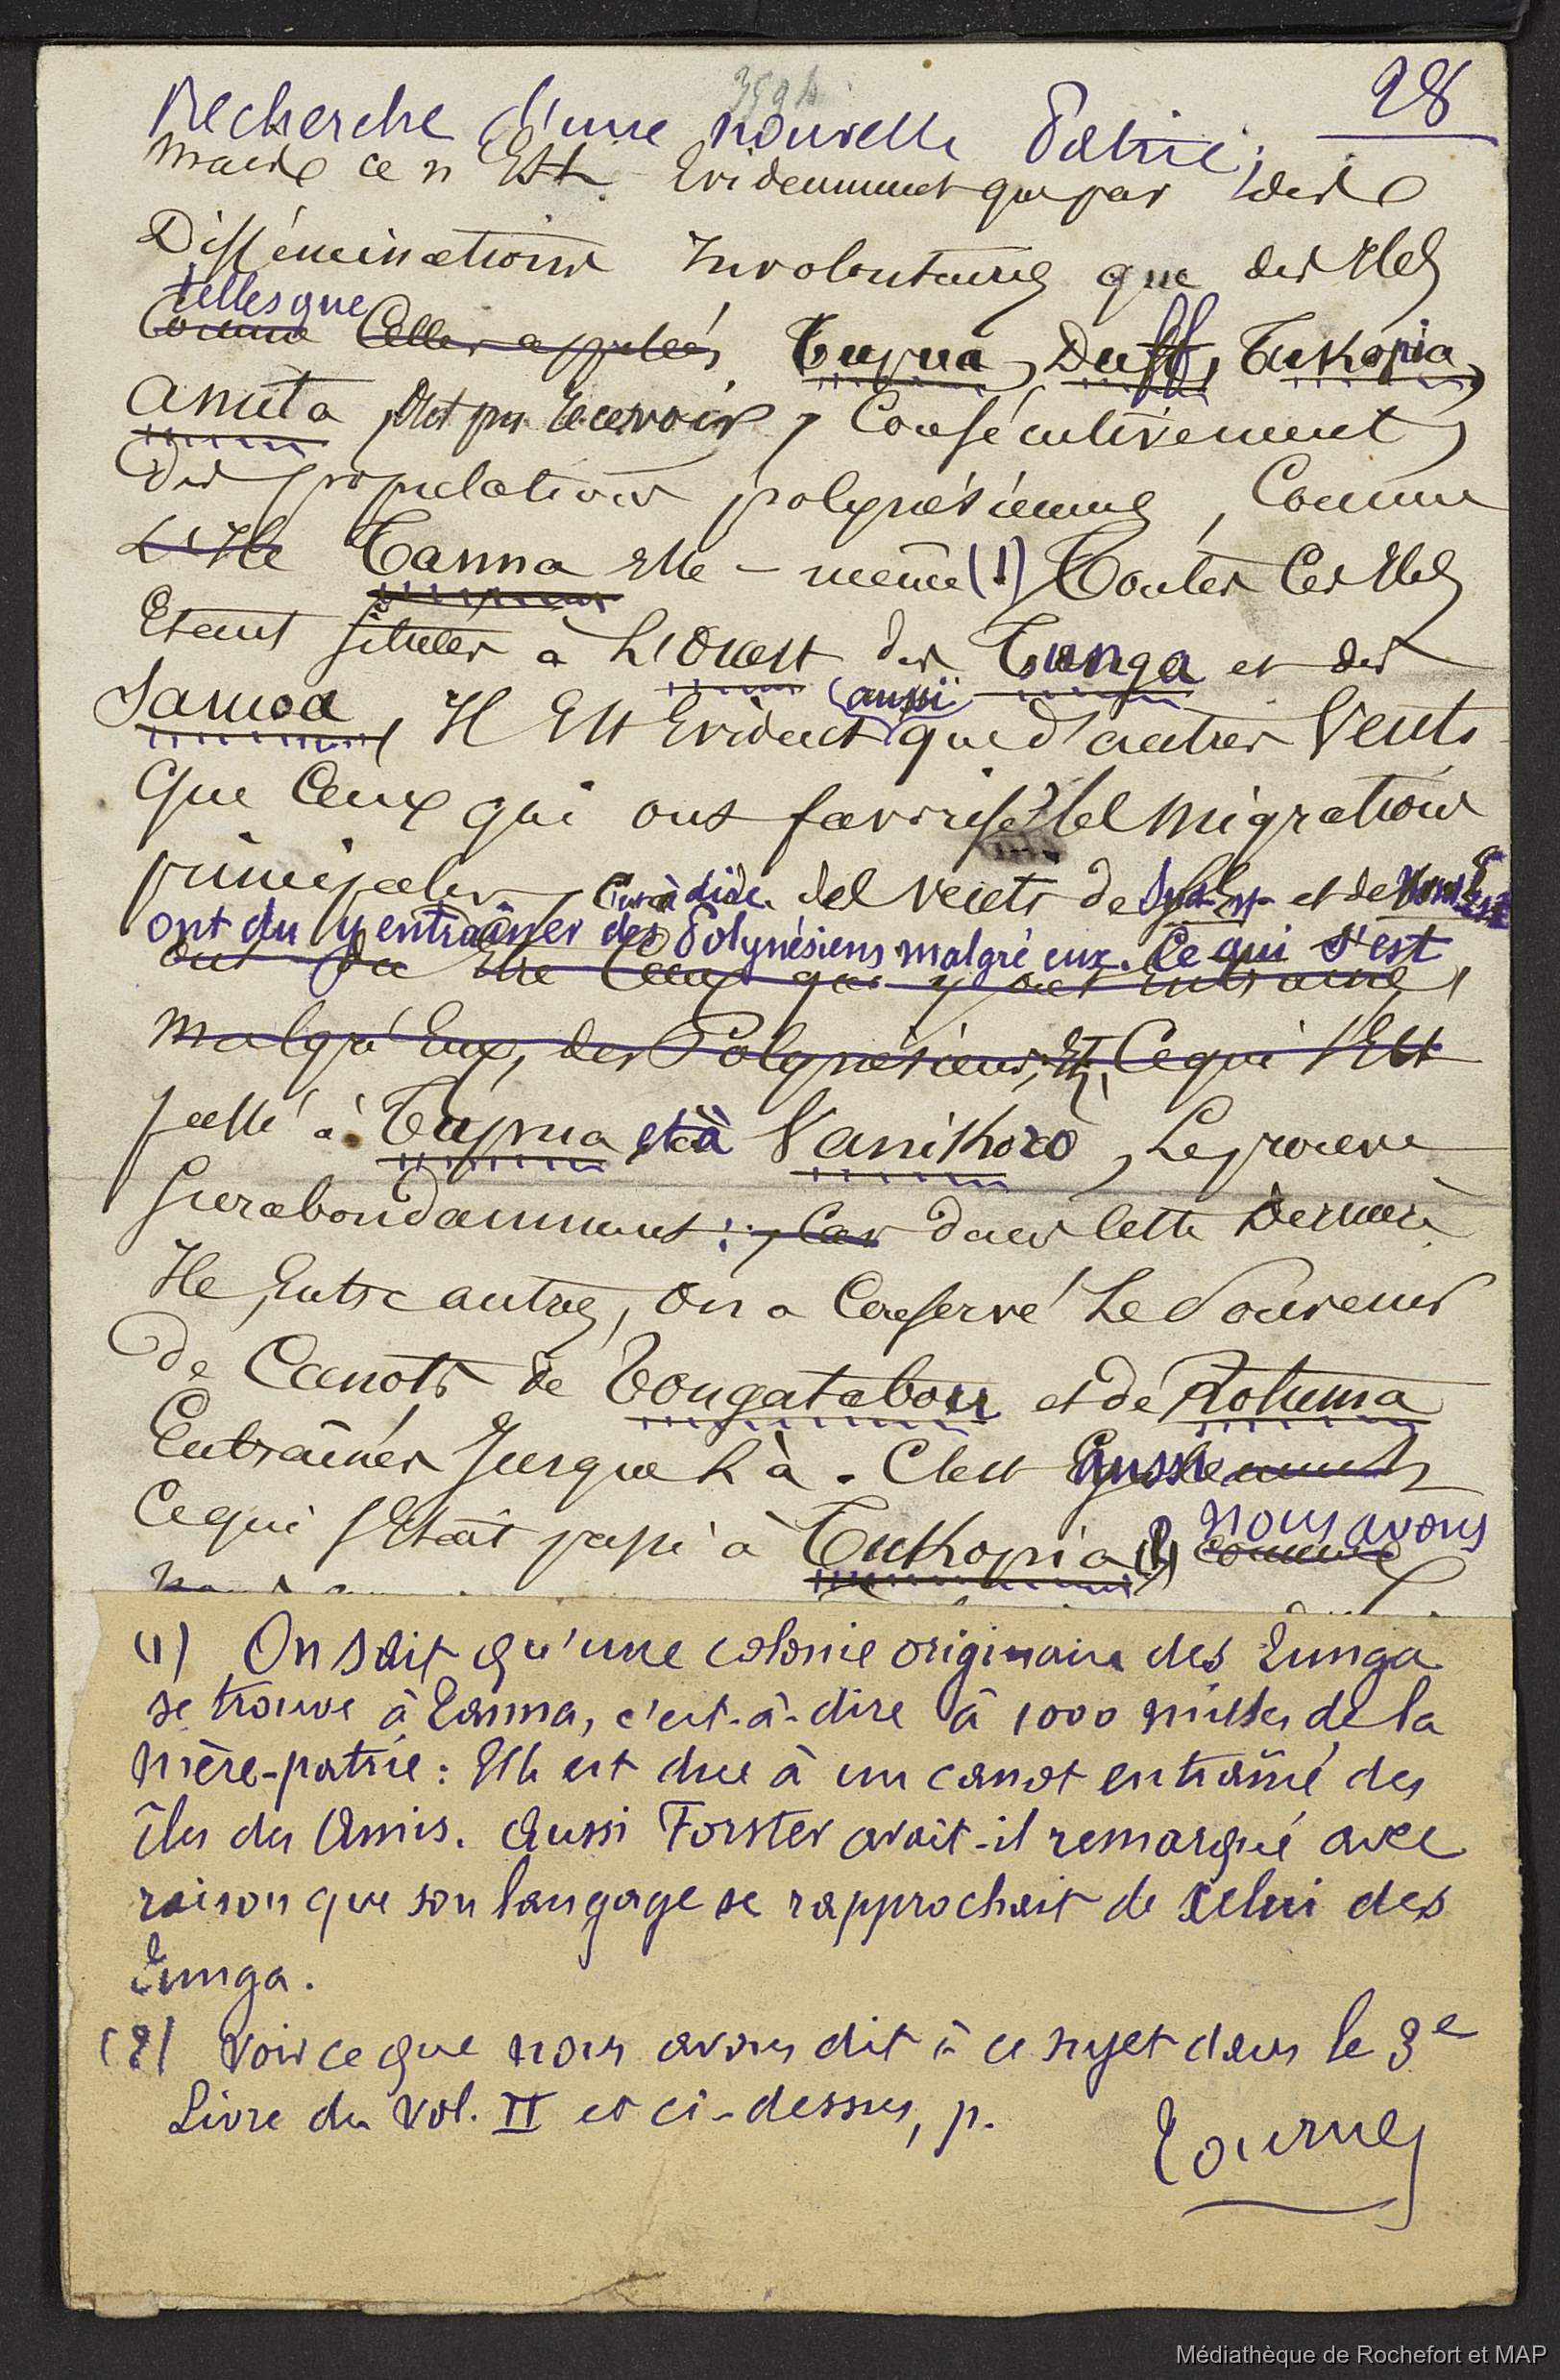 359A
28
Recherche d'une nouvelle Patrie;
mais ce n'Est Evidemment que par des
Disséminations Involontaires que des Iles
telles que
Comme Celles appelées Tupua, Duff, Tukopia,
Anuta, ont pu recevoir, Consécutivement,
des populations polynésiennes, Comme
L'Ile Tanna elle-même (1) Toutes Ces Iles
Etant situées à L'Ouest des Tunga et des
aussi
Samoa, Il Est Evident que d'autres Vents
Que Ceux qui ont favorisé les migrations
principales, C'est à dire des vents de et de
ont du y entraîner des Polynésiens malgré eux. Ce qui s'est
Ont du être Ceux qui y ont entrainé,
malgré Eux, des Polynésiens; Et, Ce qui s'Est
passé à Tupua et à Vanikoro, Le prouve
surabondamment: , Car dans Cette Dernière
Ile, Entre autres, On a Conservé Le Souvenir
de Canots de Tongatabou et de Rotuma
Entraînés Jusque Là. C'est aussi
nous avons
Ce qui s'Etait passé à Tukopia (2) comme
(1) On sait qu'une colonie originaire des Tunga
se trouve à Tanna, c'est-à-dire à 1000 milles de la
mère-patrie: Elle est due à un canot entraîné des
îles des Amis. Aussi Forster avait-il remarqué avec
raison que son langage se rapprochait de celui des
Tunga.
(2) Voir ce que nous avons dit à ce sujet dans le 3e
Livre du Vol. II et ci-dessus, p.
Tournez
Médiathèque de Rochefort et MAP